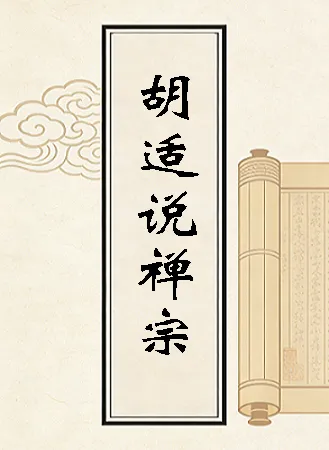 胡适说禅宗